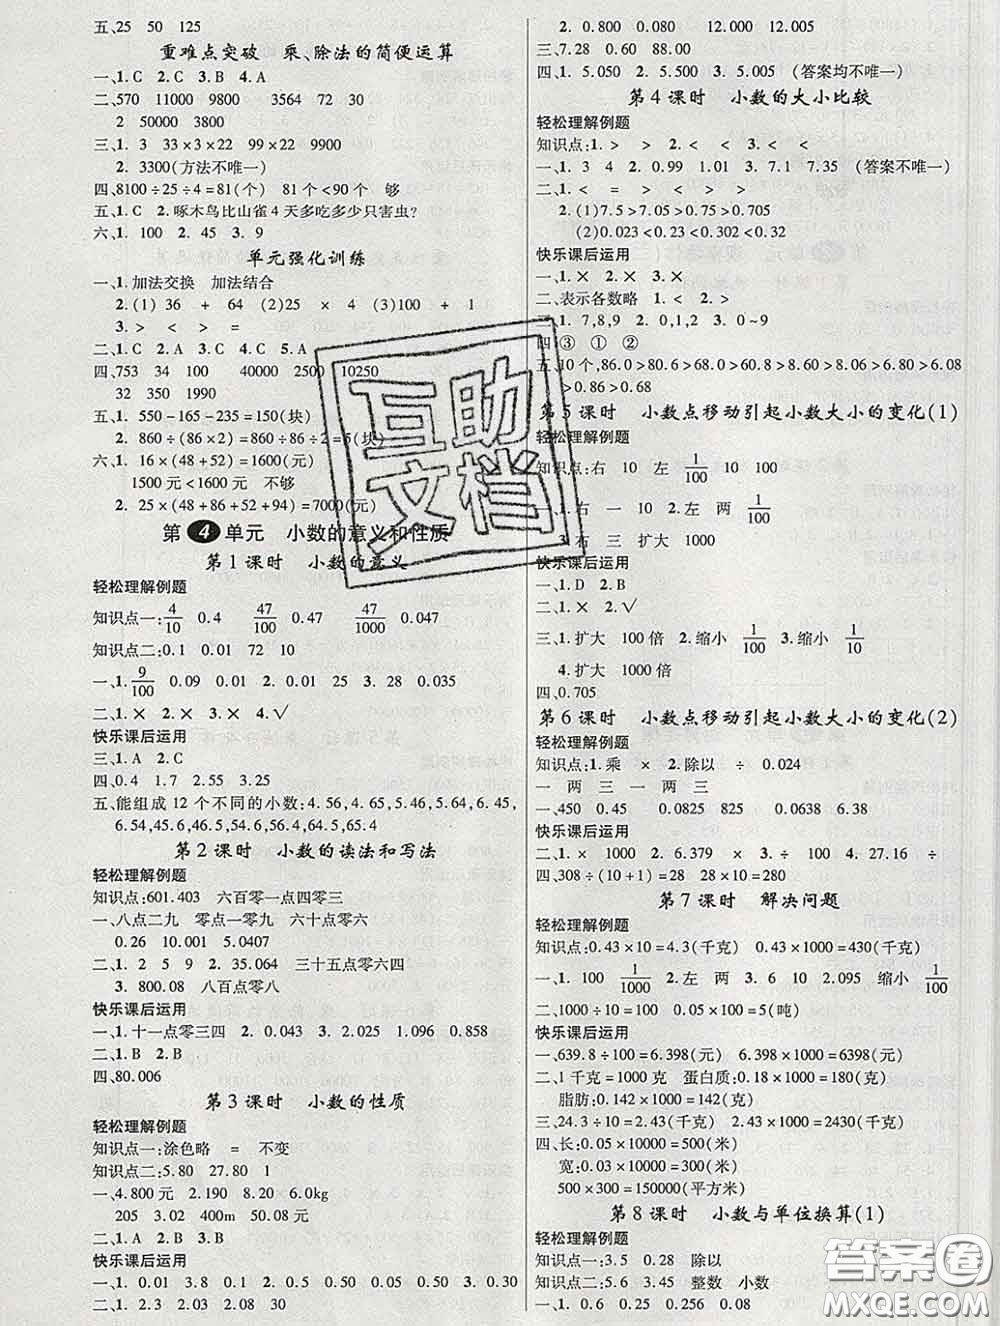 五、25　50　125
重难点突破　乘、除法的简便运算
一、1. C　2. C　3. B　4. A
二、570　11000　9800　3564　72　30
2　50000　3800
三、1. 3　33×3×22　99×22　9900
2. 3300(方法不唯一)
四、8100÷25÷4=81(个)　81 个<90 个　够
五、1. C　2. 啄木鸟比山雀 4 天多吃多少只害虫?
六、1. 100　2. 45　3. 9
单元强化训练
一、1. 加法交换　加法结合
2. (1) 36　+　64　(2)25　×　4　(3)100　+　1
3. >　<　>　=
二、1. C　2. A　3. C　4. C　5. A
四、753　34　100　40000　2500　10250
32　350　1990
五、1. 550-165-235=150(块)
2. 860÷(86×2)=860÷86÷2=5(块)
六、1. 16×(48+52)=1600(元)
1500 元<1600 元　不够
2. 25×(48+86+32+114)=7000(元)
第4单元　小数的意义和性质
第 1 课时　小数的意义
轻松理解例题
知识点一:4/10　0.4　47/100　0.47　47/1000　0.047
知识点二:0.1　0.01　72　10
一、1. 9/100　0.09　0.01　2. 0.01　25　3. 28　0.035
二、1. ×　2. ×　3. ×　4. √
快乐课后运用
三、1. A　2. C
四、0.4　1.7　2.55　3.25
五、能组成 12 个不同的小数:4.56,4.65,5.46,5.64,6.45,
6.54,45.6,46.5,54.6,56.4,64.5,65.4
第 2 课时　小数的读法和写法
轻松理解例题
知识点:601.403　六百零一点四零三
一、八点二九　零点一零九　六十点零六
0.26　10.001　5.0407
二、1. 2　5　9　2. 35.064　三十五点零六四
3. 800.08　八百点零八
快乐课后运用
一、1. 十一点零三四　2. 0.043　3. 2.015　1.096　0.858
二、1. B　2. B
四、80.006
第 3 课时　小数的性质
轻松理解例题
知识点一:涂色略　=　不变
知识点二:5.80　27.80　1
一、4.800　2.190　8.20　6.0kg
205　3.02　400m　50.08 元
二、1. A　2. B　3. B
快乐课后运用
一、1. 0.01　3.8　0.1　2. 0.5　0.50　4.5　4.50　3. 0.30
二、1. 2.3　2.03　2.08　30
2. 0.800　0.080　12.000　12.005
三、7.28　0.60　88.00
四、1. 5.050　2. 5.500　3. 5.005　(答案均不唯一)
第 4 课时　小数的大小比较
轻松理解例题
知识点:1. >　>　2. <　<　3. <　<
一、1. 3　4　2. 0.99　1.01　3. 7.1　7.35　(答案不唯一)
二、1. <　=　>　>　>　<
2. (1)7.5>7.05>0.75>0.705
(2)0.023<0.23<0.302<0.32
快乐课后运用
一、1. ×　2. ×　3. ×
二、表示各数略　1. <　2. >
三、1. 7,8,9　2. 0,1,2　3. 0~9
四、③　①　②
五、10 个,86.0>80.6>68.0>60.8>8.60>8.06>6.80>6.08
>0.86>0.68
第 5 课时　小数点移动引起小数大小的变化(1)
轻松理解例题
知识点:右　10　左　1/100　10　100
一、1. 右　两　2. 左　两　1/100
3. 右　三　扩大　1000
快乐课后运用
一、1. D　2. B
二、1. ×　2. √
三、1. 扩大　100 倍　2. 缩小　1/100　3. 缩小　1/10
4. 扩大　1000 倍
四、0.705
第 6 课时　小数点移动引起小数大小的变化(2)
轻松理解例题
知识点:1. 乘　×　2. 除以　÷　0.024
一　两　三　一　两　三
一、450　45　0.0825　825　0.0638　6.38
快乐课后运用
二、1. ×　1000　2. 6.379　×　3. ÷　100　4. 27.16　÷
四、308÷(10+1)=28　28×10=280
第 7 课时　解决问题
轻松理解例题
知识点:0.43×10=4.3(千克)　0.43×1000=430(千克)
一、1. 100　1/1000　2. 左　两　3. 6　10　2.095　缩小　1/100
二、1000÷100=10　0.5×10=5(吨)
快乐课后运用
一、639.8÷100=6.398(元)　6.398×1000=6398(元)
二、1 千克=1000 克　蛋白质:0.18×1000=180(克)
脂肪:0.142×1000=142(克)
三、24.3÷10=2.43(千克)　2.43×1000=2430(千克)
四、长:0.05×10000=500(米)
宽:0.03×10000=300(米)
500×300=150000(平方米)
第 8 课时　小数与单位换算(1)
轻松理解例题
知识点一:3.5　0.28　除以
知识点二:5.6　3.45　整数　小数
一、1. 0.6　0.25　0.056　0.08
互助
文档
答案圈
MXQE.COM